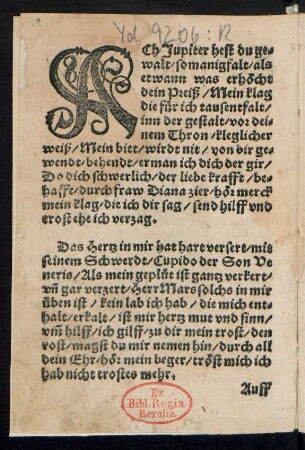 Yd 9206: R
ACh Jupiter hest du ge⸗
walt/so manigfalt/als
etwann was erhöcht
dein Preiß/Mein klag
die für ich tausentfalt/
inn der gestalt/vor dei⸗
nem Thron/kleglicher
weiß/Mein bitt/wirdt nit/von dir ge⸗
wendt/behendt/erman ich dich der gir/
Do dich schwerlich/der liebe krafft/be⸗
hafft/durch fraw Diana zier/hör merck
mein klag/die ich dir sag/send hilff vnd
trost ehe ich verzag.
Das Hertz in mir hat hart versert/mit
seinem Schwerdt/Cupido der Son Ve
neris/Als mein geplüt ist gantz verkert/
vñ gar verzert/Herr Mars solchs in mir
üben ist/kein lab ich hab/die mich ent⸗
halt/erkalt/ist mir hertz mut vnd sinn/
vñ hilff/ich gilff/zu dir mein trost/den
rost/magst du mir nemen hin/durch all
dein Ehr/hör mein beger/tröst mich ich
hab nicht trostes mehr.
Auff
Ex
Bibl. Regia
Berolin.